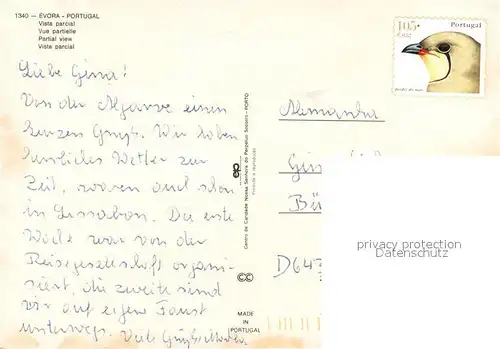 1340 — ÉVORA - PORTUGAL
Vista parcial
Vue partielle
Partial view
Vista parcial
Liebe Gina!
Von der Algarve einen
kurzen Gruß. Wir haben
herrliches Wetter zur
Zeit, waren auch schon
in Lissabon. Die erste
Woche war von der
Reisegesellschaft organi-
siert, die zweite sind
wir auf eigene Faust
unterwegs. Viele Grüße
Centro de Caridade Nossa Senhora do Perpétuo Socorro - PORTO
Proibida a reprodução
MADE
IN
PORTUGAL
105+
Portugal
Alemanha
privacy protection
Datenschutz
D647